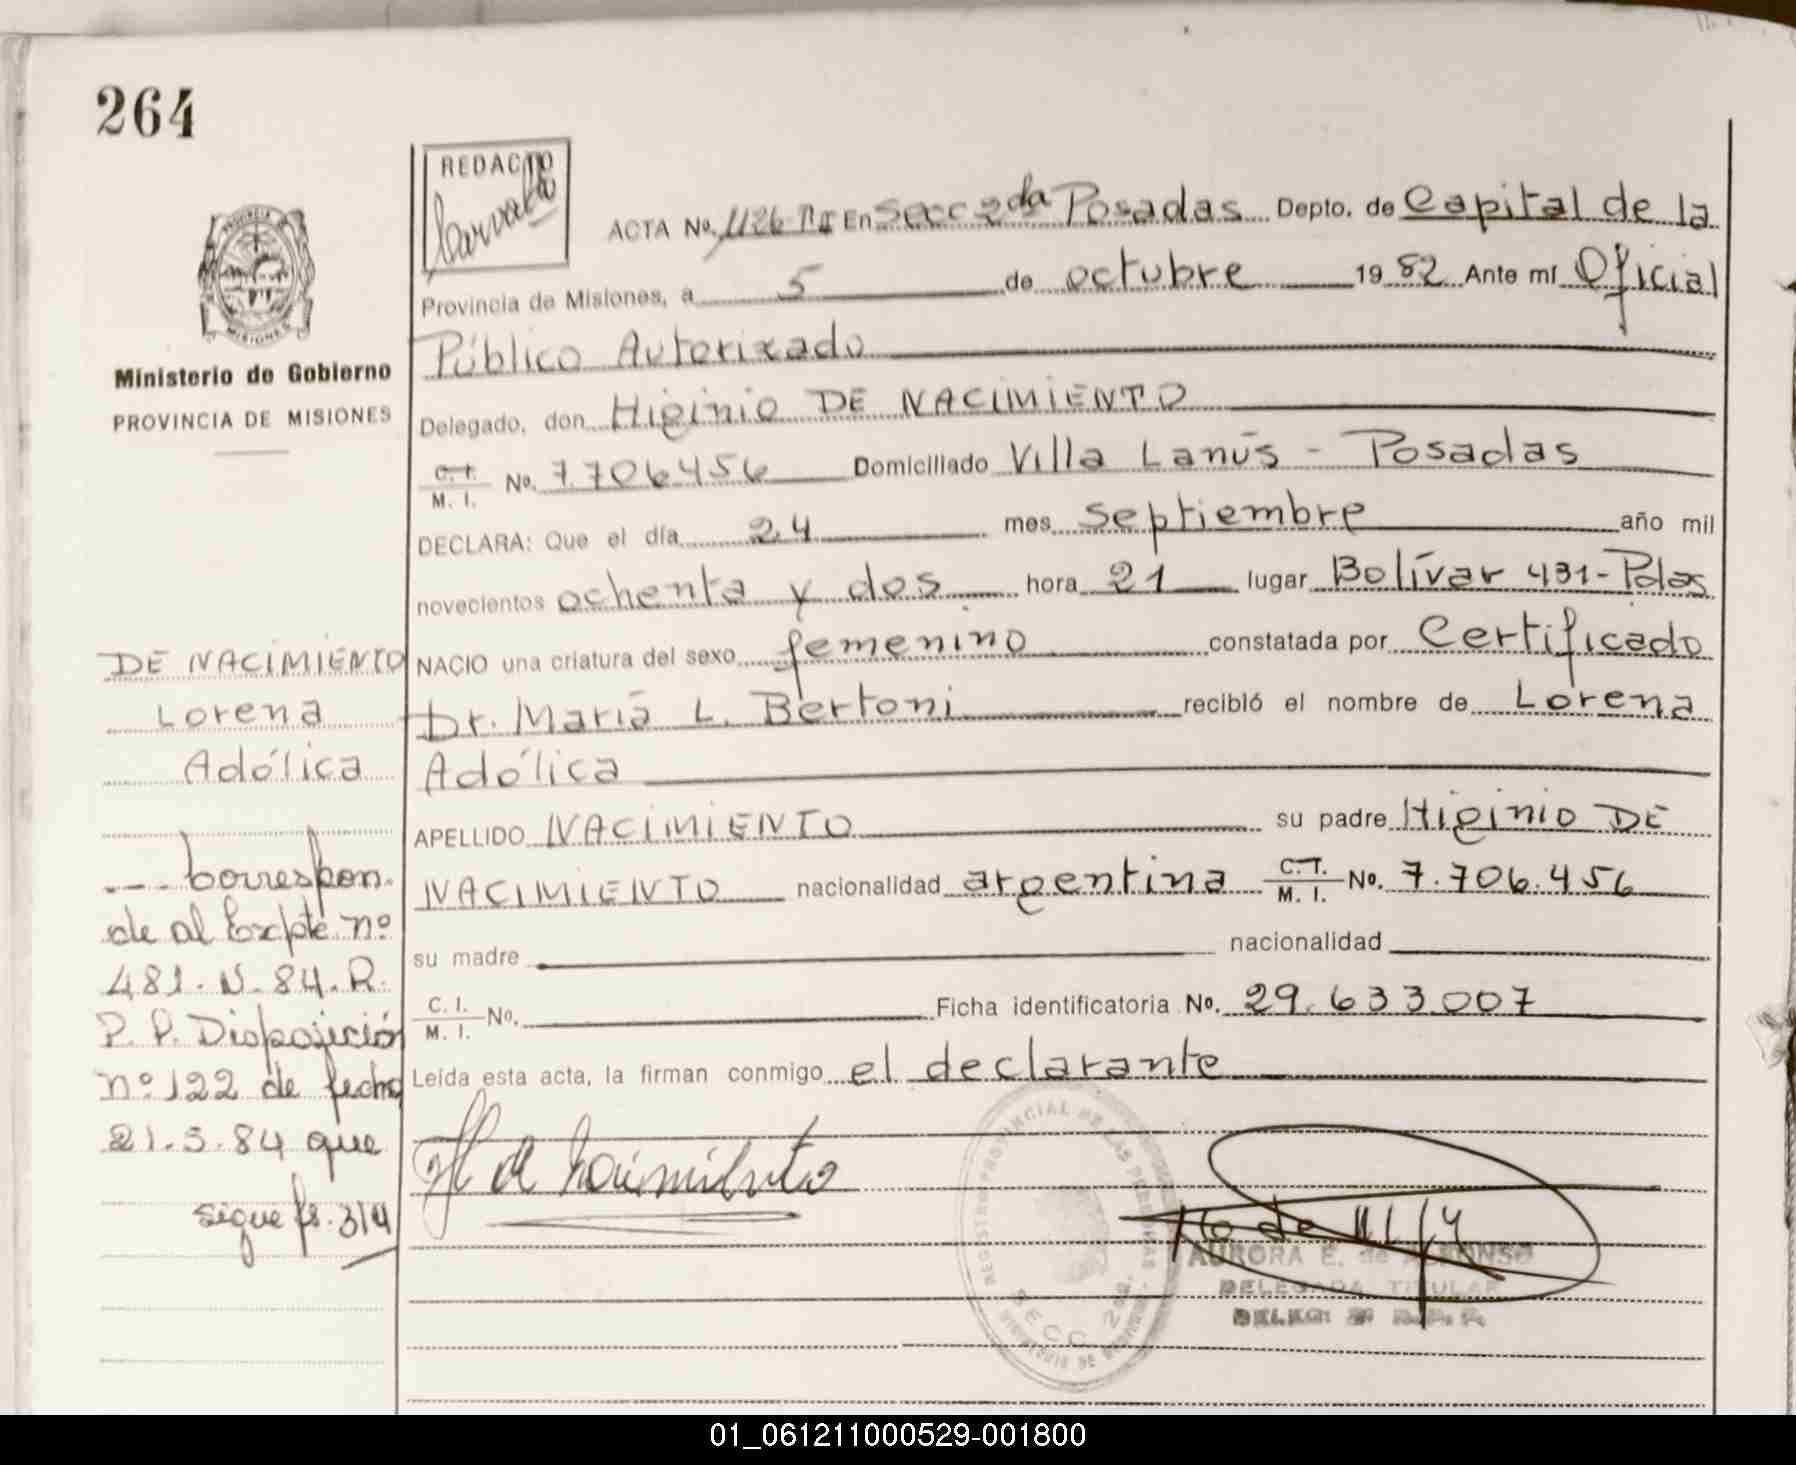 264
REDACTO
ACTA No. 1126 TII En Secc 2da Posadas Depto. de Capital de la
Provincia de Misiones, a 5 de octubre 1982 Ante mí Oficial
Público Autorizado
Ministerio de Gobierno
PROVINCIA DE MISIONES
Delegado, don Higinio DE NACIMIENTO
C.I. M. I. No. 7.706456 Domiciliado Villa Lanús - Posadas
DECLARA: Que el día 24 mes septiembre año mil
novecientos ochenta y dos hora 21 lugar Bolívar 431-Pdas
NACIO una criatura del sexo femenino constatada por Certificado
Dr. María L. Bertoni recibió el nombre de Lorena
Adólica
APELLIDO NACIMIENTO su padre Higinio DE
NACIMIENTO nacionalidad argentina C.I. M. I. No. 7.706.456
su madre nacionalidad
C. I. M. I. No. Ficha identificatoria No. 29.633.007
Leída esta acta, la firman conmigo el declarante
DE NACIMIENTO
Lorena
Adólica
Correspon-
de al Expte. nº
481-N-84-R.
P. P. Disposición
nº 122 de fecha
21.5.84 que
sigue fs. 314
H de Nacimiento
REGISTRO PROVINCIAL DE LAS PERSONAS
SECC. 2da.
AURORA E. de ALFONSO
DELEGADA TITULAR
01_061211000529-001800